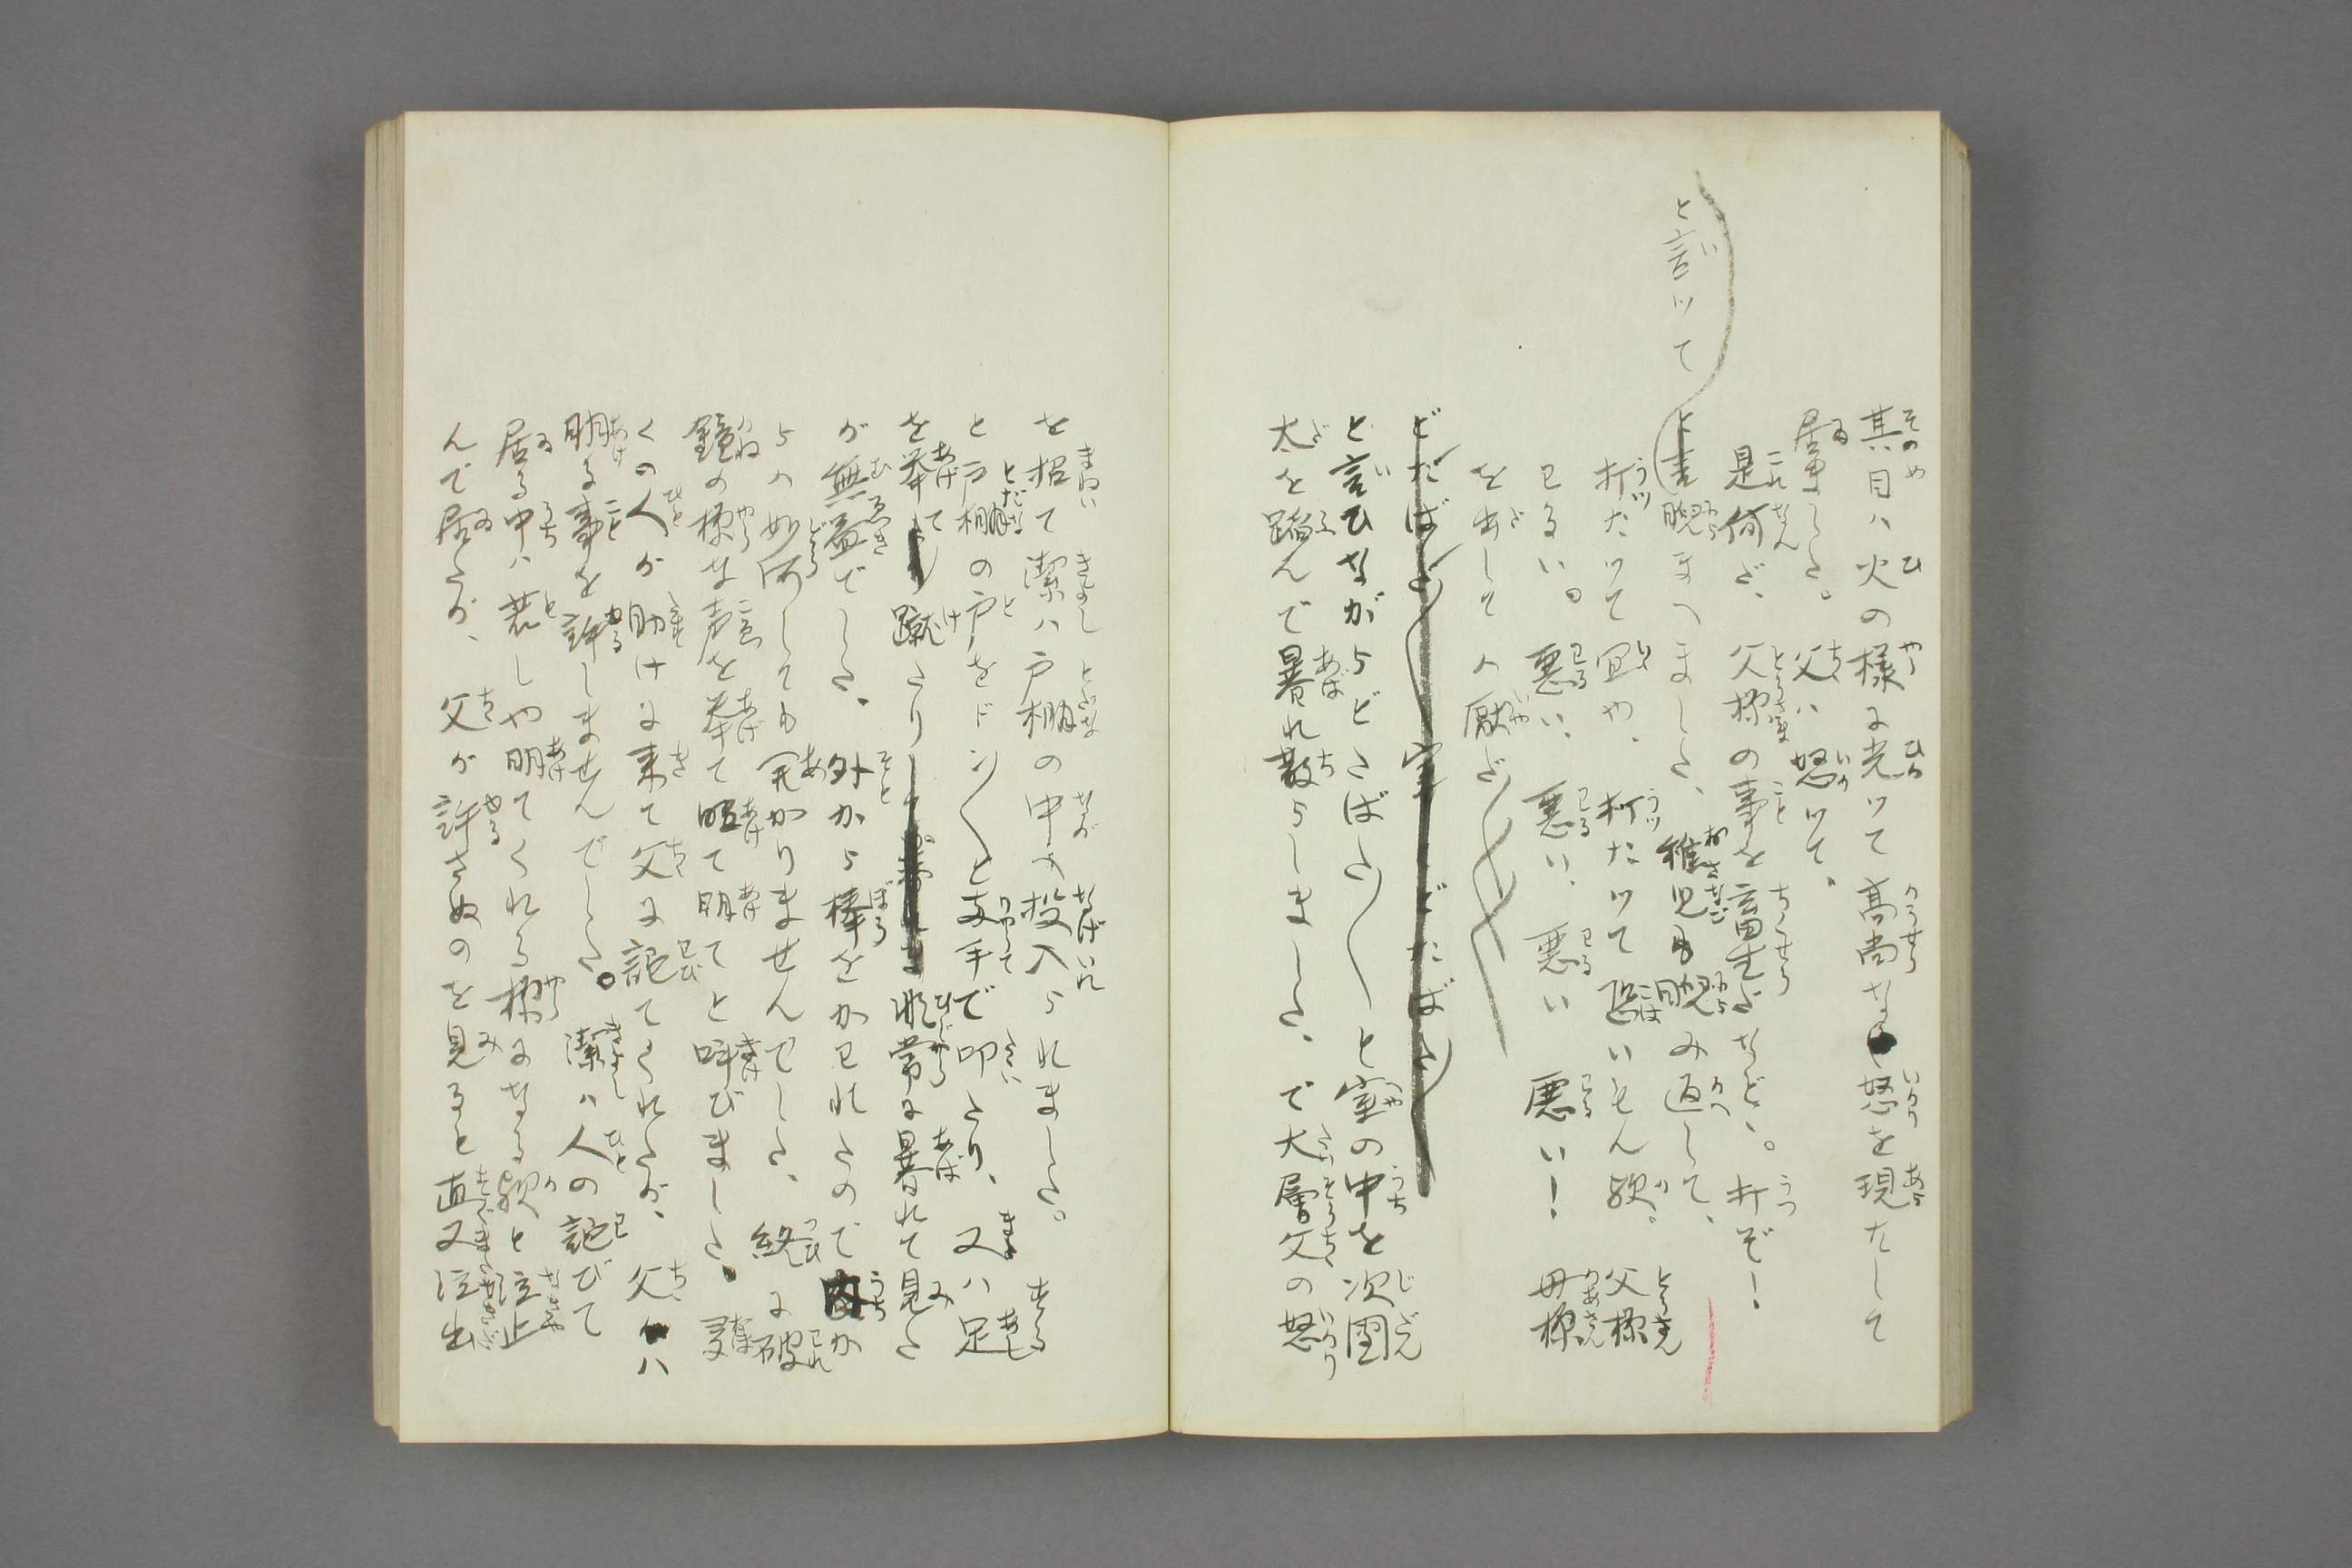 其目ハ火の様に光ツて高尚な怒を現ハして
居ました。父ハ怒ツて、
是何だ、父様の事を畜生だなど、。打ぞ!
と言ツて
睨まへました、稚児も睨み返して、
打たツて宜や、打たツて恐いもん歟。父様
わるい。悪い、悪い、悪い 悪い! 母様
を出しては厭だ〳〵〳〵
と言ひながらどたばた〳〵と室の中を次團
太を踏んで暴れ散らしました、で大層父の怒
を招て潔ハ戸棚の中へ投入られました。する
と戸棚の戸をドン〳〵と両手で叩たり、又ハ足
を挙て蹴たりし非常に暴れて見た
が無益でした、外から棒をかわれたので内か
らハ如何しても開かりませんでした、終に破
鐘の様な声を挙て明て明てと呼びました。多
くの人が助けに来て父に詑てくれたが、父ハ
明る事を許しませんでした。潔ハ人の詑びて
居る中ハ若しや明てくれる様になる歟と泣止
んで居たが、父が許さぬのを見ると直又泣出